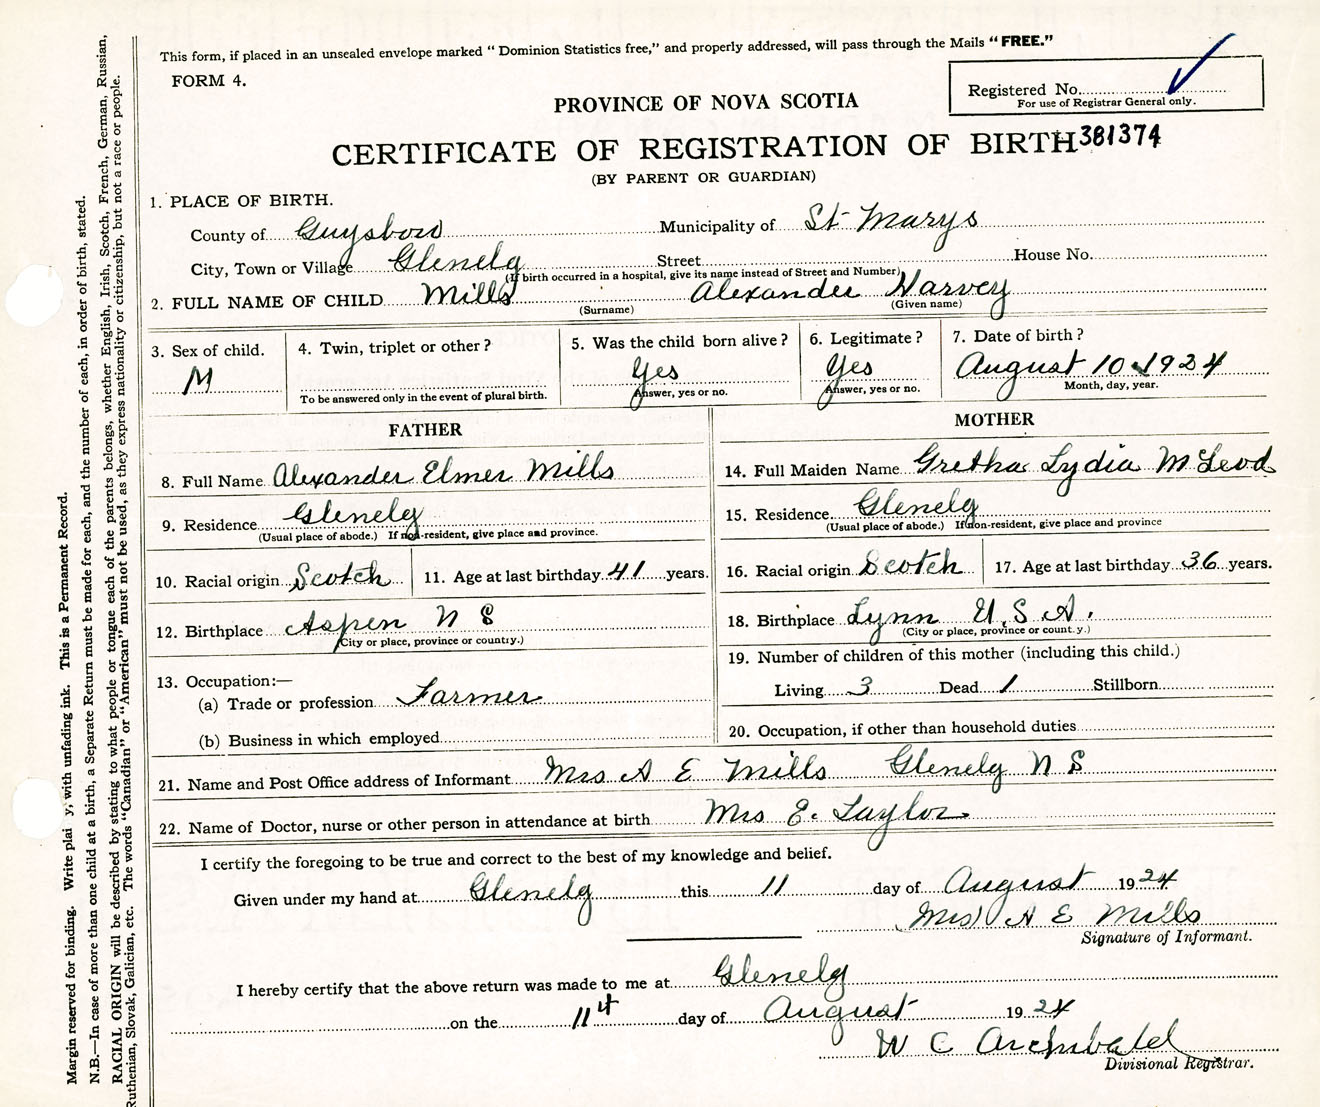 This form, if placed in an unsealed envelope marked “ Dominion Statistics free,” and properly addressed, will pass through the Mails “ FREE.”
FORM 4.
Registered No.
For use of Registrar General only.
PROVINCE OF NOVA SCOTIA
CERTIFICATE OF REGISTRATION OF BIRTH 381374
(BY PARENT OR GUARDIAN)
1. PLACE OF BIRTH.
County of Guysboro Municipality of St Marys
City, Town or Village Glenelg Street House No.
(If birth occurred in a hospital, give its name instead of Street and Number)
2. FULL NAME OF CHILD Mills Alexander Harvey
(Surname) (Given name)
3. Sex of child. 4. Twin, triplet or other? 5. Was the child born alive? 6. Legitimate? 7. Date of birth?
M Yes Yes August 10 1924
To be answered only in the event of plural birth. Answer, yes or no. Answer, yes or no. Month, day, year.
FATHER
8. Full Name Alexander Elmer Mills
9. Residence Glenelg
(Usual place of abode.) If non-resident, give place and province.
10. Racial origin Scotch 11. Age at last birthday 41 years.
12. Birthplace Aspen N S
(City or place, province or country.)
13. Occupation:—
(a) Trade or profession Farmer
(b) Business in which employed
MOTHER
14. Full Maiden Name Gretha Lydia McLeod
15. Residence Glenelg
(Usual place of abode.) If non-resident, give place and province
16. Racial origin Scotch 17. Age at last birthday 36 years.
18. Birthplace Lynn U.S.A.
(City or place, province or country.)
19. Number of children of this mother (including this child.)
Living 3 Dead 1 Stillborn
20. Occupation, if other than household duties
21. Name and Post Office address of Informant Mrs A E Mills Glenelg N S
22. Name of Doctor, nurse or other person in attendance at birth Mrs E. Taylor
I certify the foregoing to be true and correct to the best of my knowledge and belief.
Given under my hand at Glenelg this 11 day of August 1924
(Mrs) A E Mills
Signature of Informant.
I hereby certify that the above return was made to me at Glenelg
on the 11th day of August 1924
W C Archibald
Divisional Registrar.
Margin reserved for binding. Write plai y, with unfading ink. This is a Permanent Record.
N.B.—In case of more than one child at a birth, a Separate Return must be made for each, and the number of each, in order of birth, stated.
RACIAL ORIGIN will be described by stating to what people or tongue each of the parents belongs, whether English, Irish, Scotch, French, German, Russian,
Ruthenian, Slovak, Galician, etc. The words “Canadian” or “American” must not be used, as they express nationality or citizenship, but not a race or people.